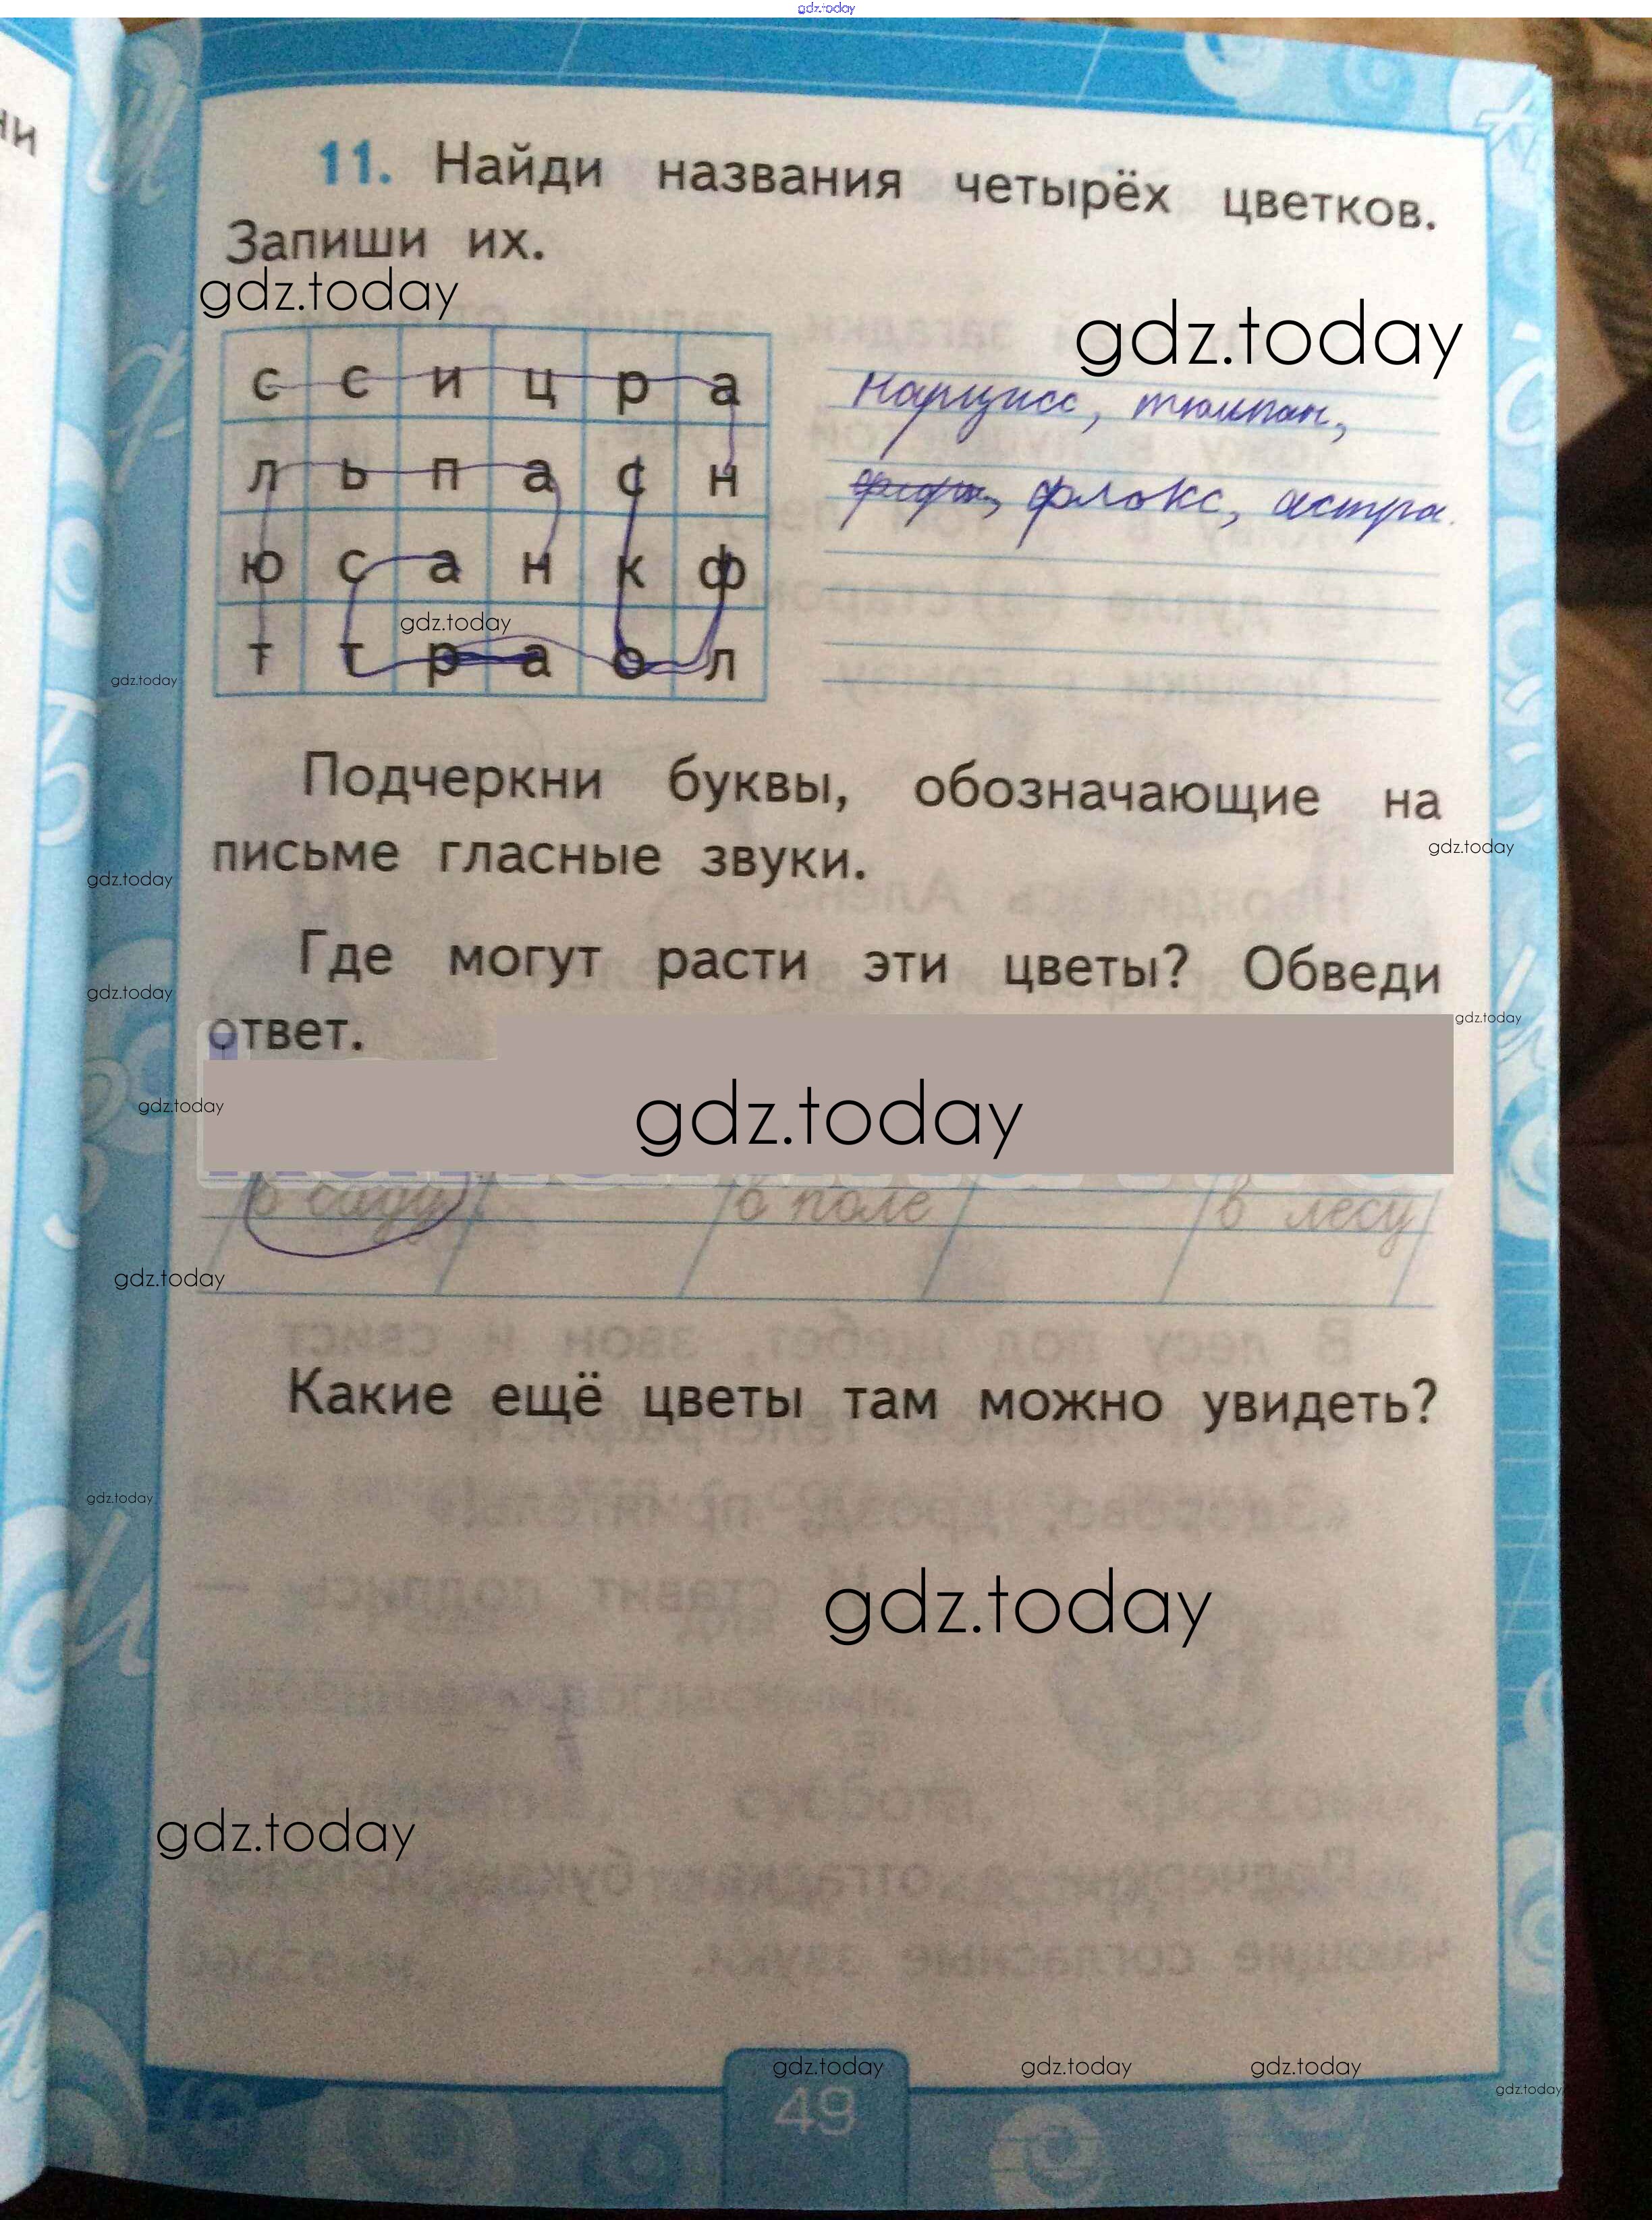 gdz.today
ни
11. Найди названия четырёх цветков.
Запиши их.
gdz.today
gdz.today
с с и ц р а
л ь п а с н
ю с а н к ф
т т р а о л
gdz.today
нарцисс, тюльпан,
флокс, астра.
gdz.today
Подчеркни буквы, обозначающие на
письме гласные звуки.
gdz.today
gdz.today
Где могут расти эти цветы? Обведи
ответ.
gdz.today
gdz.today
gdz.today
gdz.today
в саду в поле в лесу
gdz.today
Какие ещё цветы там можно увидеть?
gdz.today
gdz.today
gdz.today
gdz.today gdz.today gdz.today
gdz.today
49